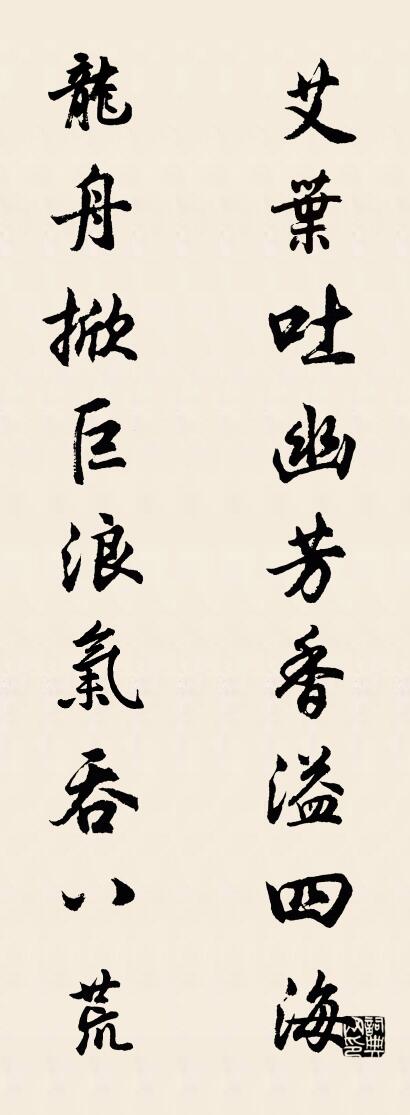 艾葉吐幽芳香溢四海
龍舟掀巨浪氣吞八荒